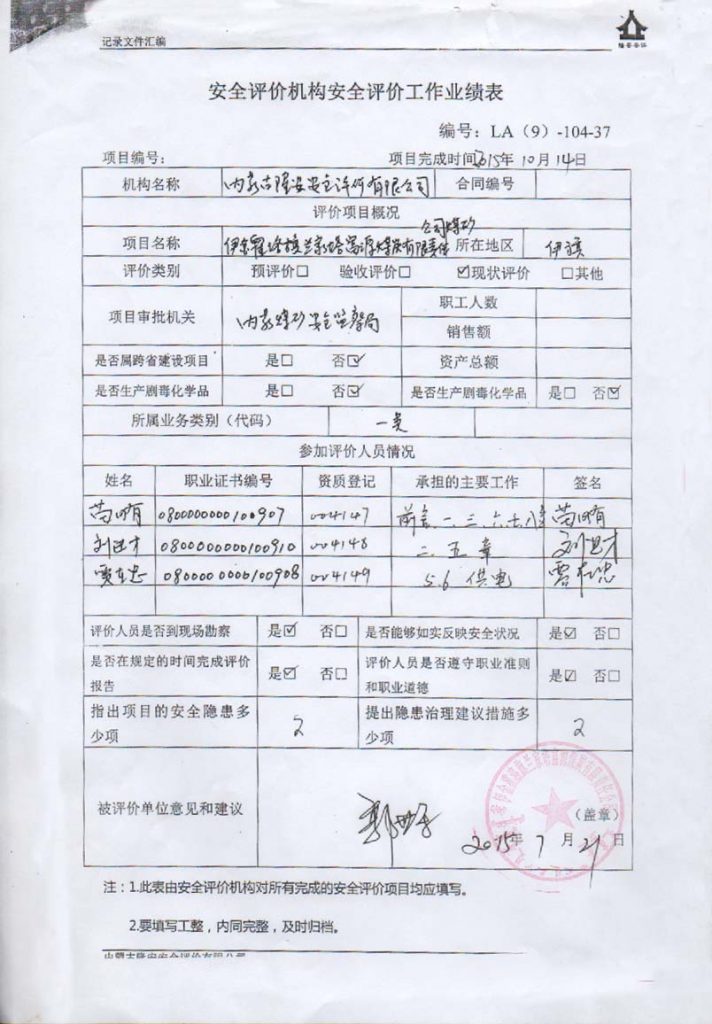 记录文件汇编
隆安安评
安全评价机构安全评价工作业绩表
编号：LA（9）-104-37
项目编号： 项目完成时间2015年10月14日
机构名称 内蒙古隆安安全评价有限公司 合同编号
评价项目概况
公司煤矿
项目名称 伊金霍洛旗兰家塔富源煤炭有限责任 所在地区 伊旗
评价类别 预评价□ 验收评价□ ☑现状评价 □其他
项目审批机关 内蒙煤矿安全监察局 职工人数
销售额
是否属跨省建设项目 是□ 否☑ 资产总额
是否生产剧毒化学品 是□ 否☑ 是否生产剧毒化学品 是□ 否☑
所属业务类别（代码） 一类
参加评价人员情况
姓名 职业证书编号 资质登记 承担的主要工作 签名
0800000000100907 004147 前言、一、三、六
0800000000100910 004148 二、五章
贾在忠 0800000000100908 004149 5.6 供电 贾在忠
评价人员是否到现场勘察 是☑ 否□ 是否能够如实反映安全状况 是☑ 否□
是否在规定的时间完成评价报告 是☑ 否□ 评价人员是否遵守职业准则和职业道德 是☑ 否□
指出项目的安全隐患多少项 2 提出隐患治理建议措施多少项 2
被评价单位意见和建议
（盖章）
2015年7月21日
注：1.此表由安全评价机构对所有完成的安全评价项目均应填写。
2.要填写工整，内同完整，及时归档。
内蒙古隆安安全评价有限公司